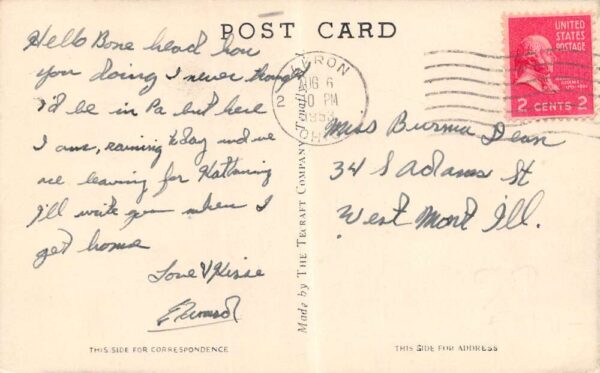 POST CARD
Hello Bone head how
you doing I never thought
I'd be in Pa but here
I am, raining today and we
are leaving for Kittaning
I'll write you when I
get home
Love & Kisse
Edward
THIS SIDE FOR CORRESPONDENCE
Made by THE TEKRAFT COMPANY Tenafly
AKRON
AUG 6
2
PM
1953
OHIO
UNITED
STATES
POSTAGE
2 CENTS 2
Miss Burma Dean
34 S Adams St
West Mont Ill.
THIS SIDE FOR ADDRESS